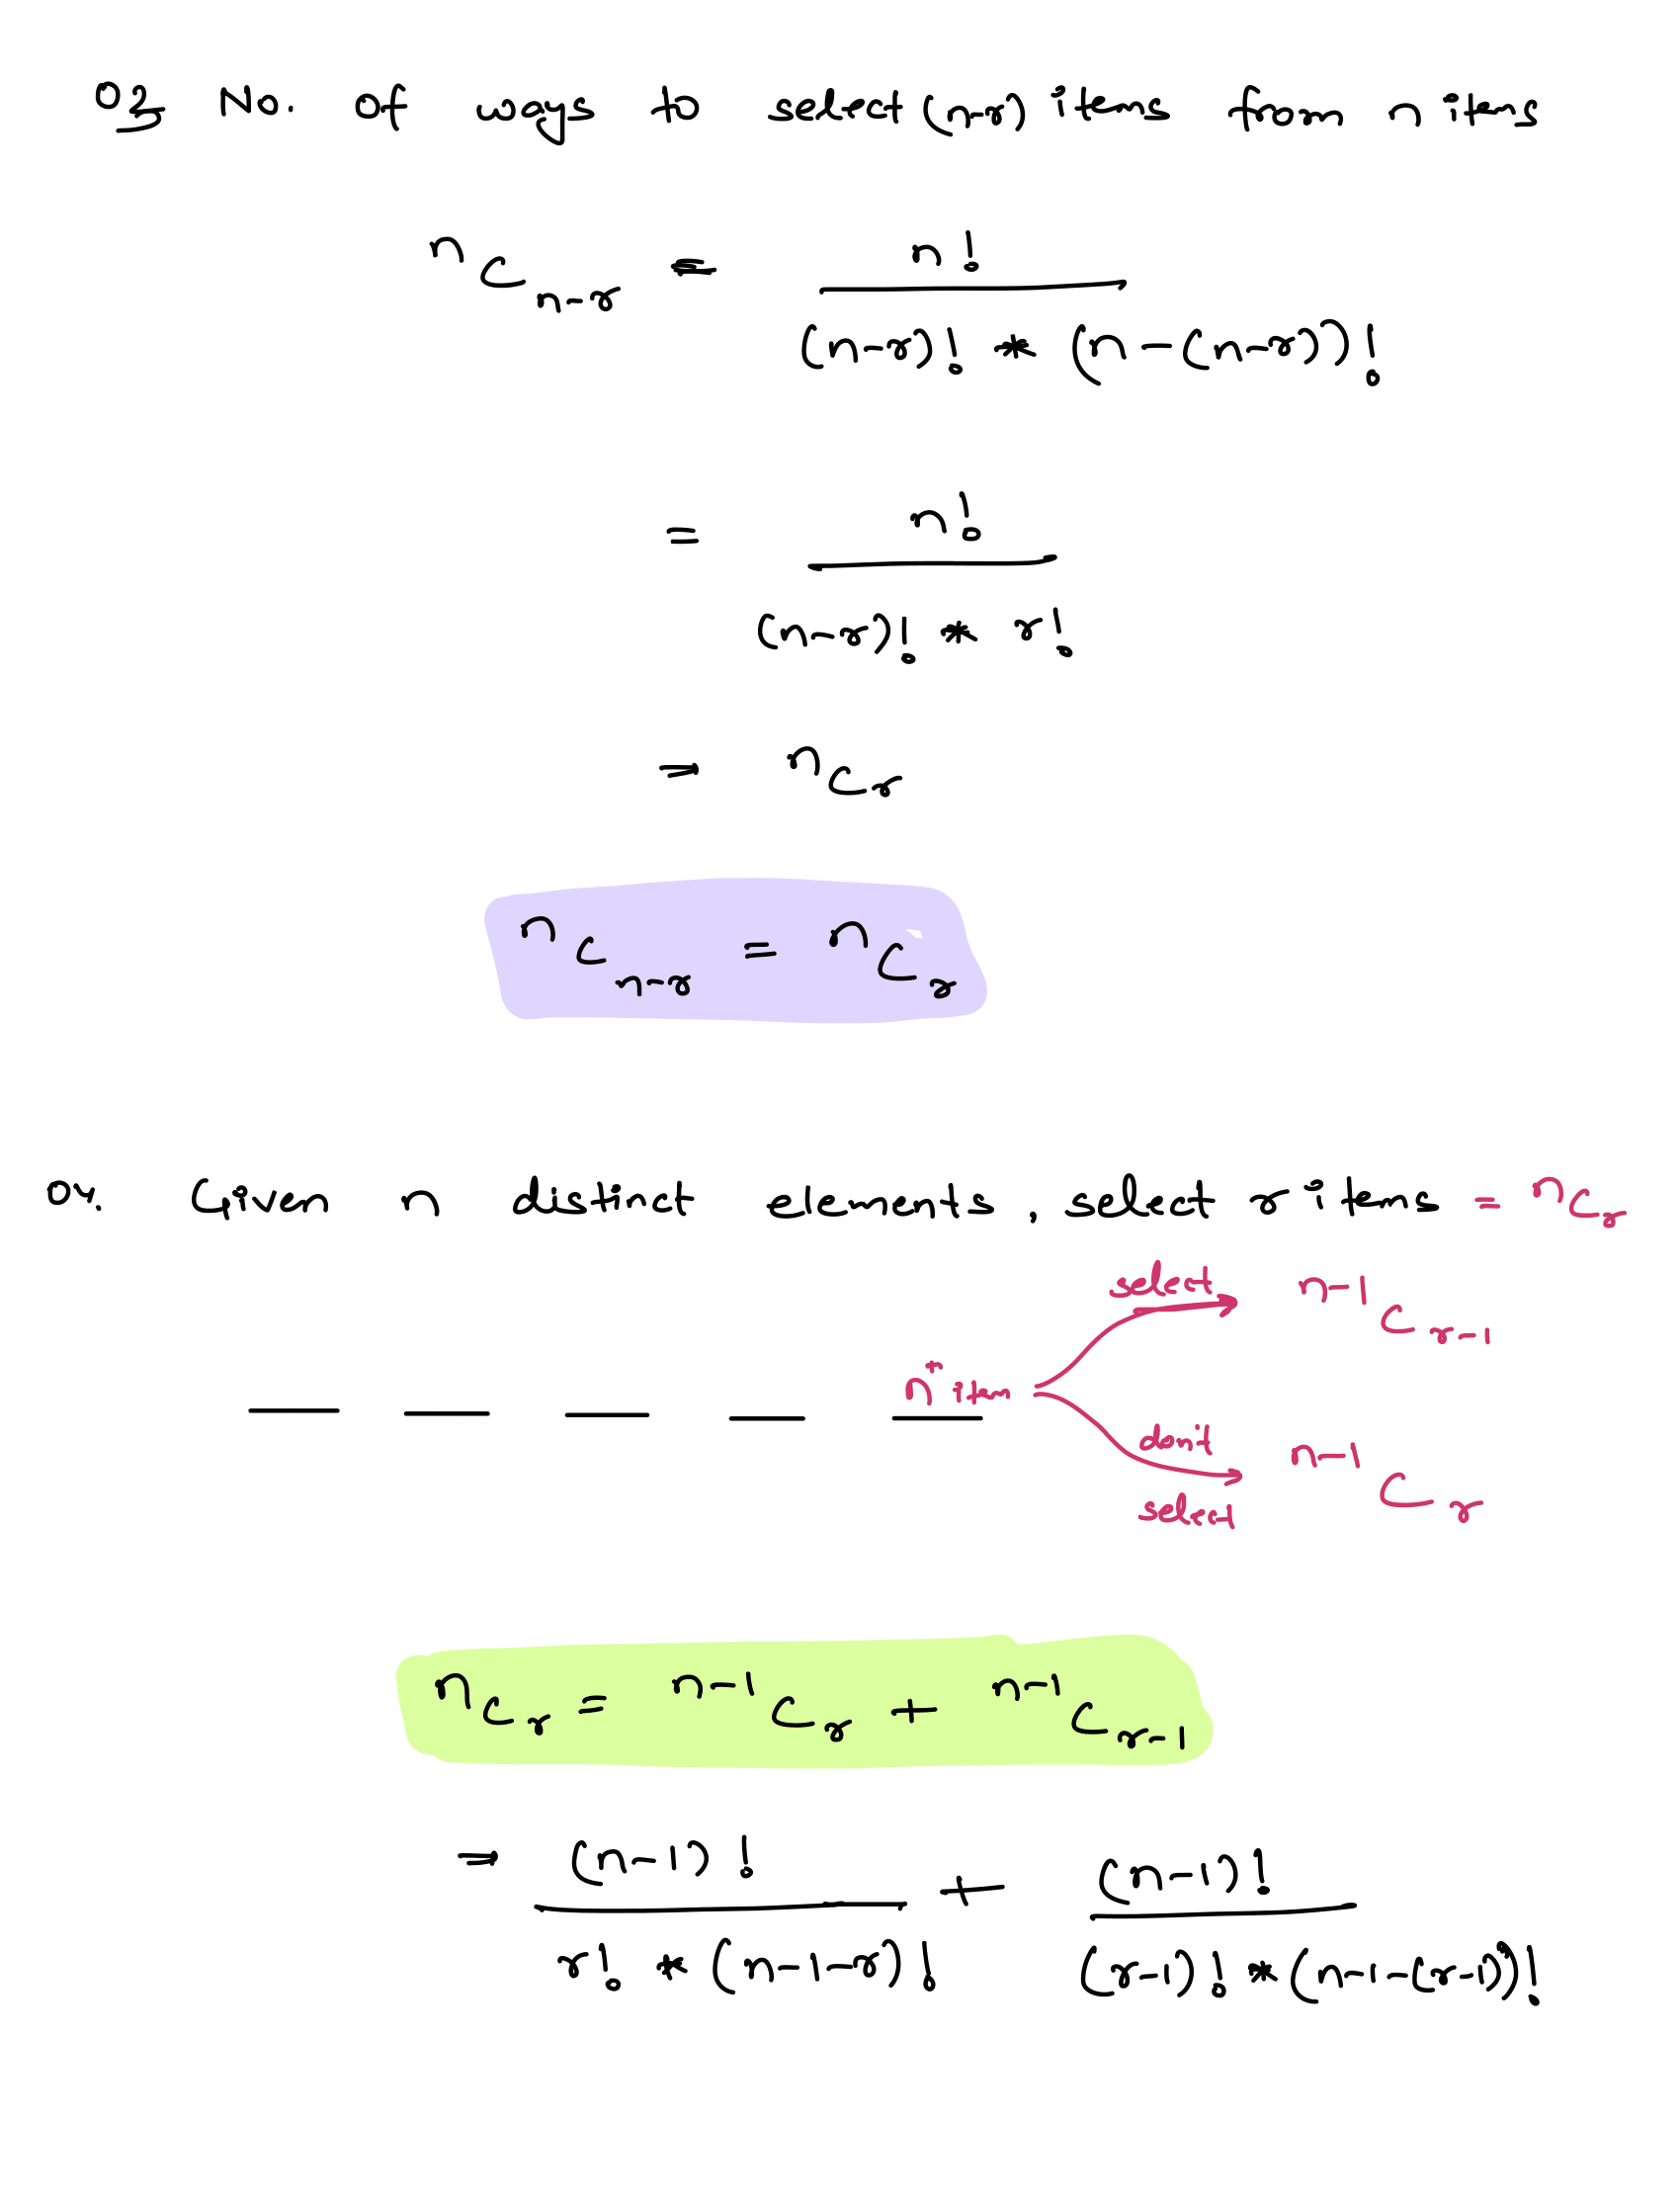 03 No. of ways to select (n-r) items from n items
ⁿC_{n-r} = n! / ((n-r)! * (n-(n-r))!)
= n! / ((n-r)! * r!)
= ⁿC_r
ⁿC_{n-r} = ⁿC_r
04. Given n distinct elements, select r items = ⁿC_r
select ⁿ⁻¹C_{r-1}
nᵗʰ item
don't ⁿ⁻¹C_r
select
ⁿC_r = ⁿ⁻¹C_r + ⁿ⁻¹C_{r-1}
= (n-1)! / (r! * (n-1-r)!) + (n-1)! / ((r-1)! * (n-1-(r-1))!)